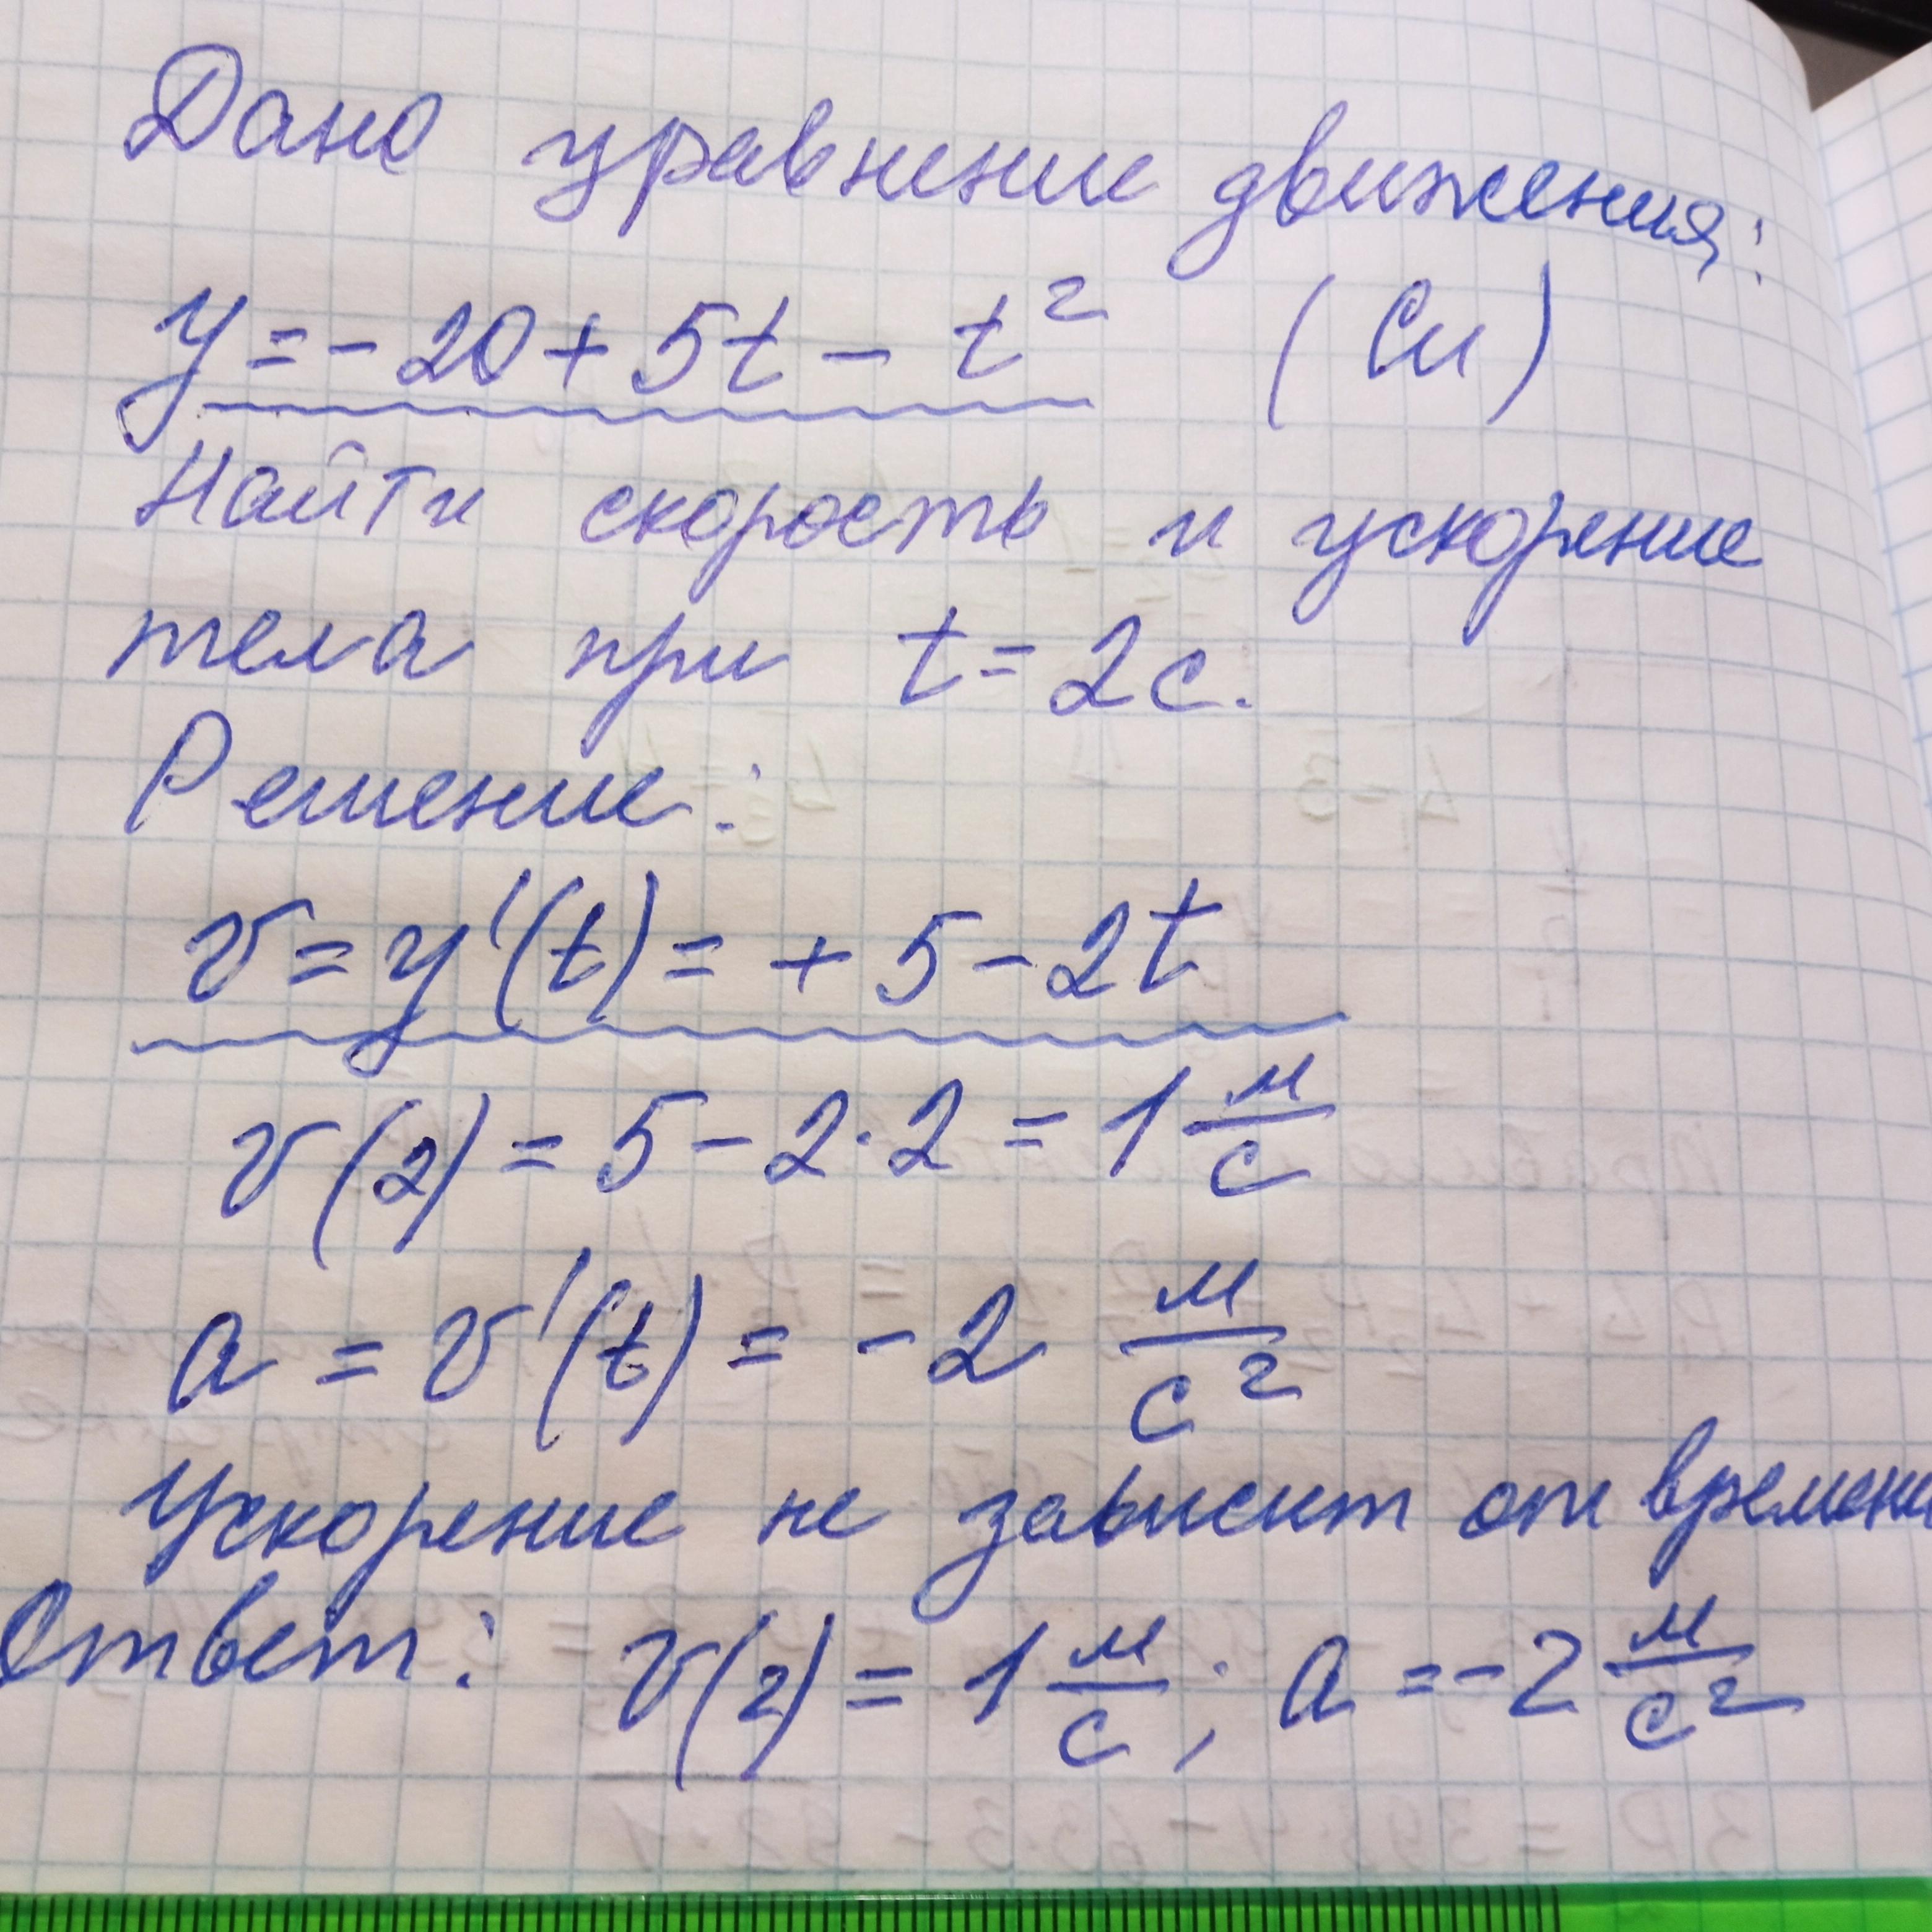 Дано уравнение движения:
y = - 20 + 5t - t² (Си)
Найти скорость и ускорение
тела при t = 2 с.
Решение:
v = y'(t) = + 5 - 2t
v(2) = 5 - 2·2 = 1 м/с
a = v'(t) = - 2 м/с²
Ускорение не зависит от времени
Ответ: v(2) = 1 м/с; a = - 2 м/с²